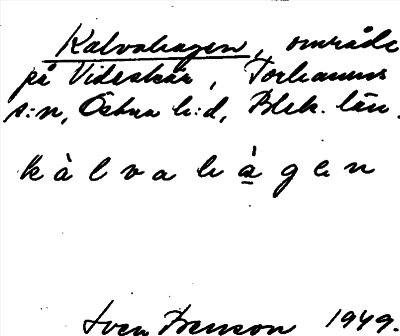 Kalvahagen, område
på Videskär, Torhamns
s:n, Östra h:d, Blek. län.
kàlvahàgen
Sven Benson 1949.